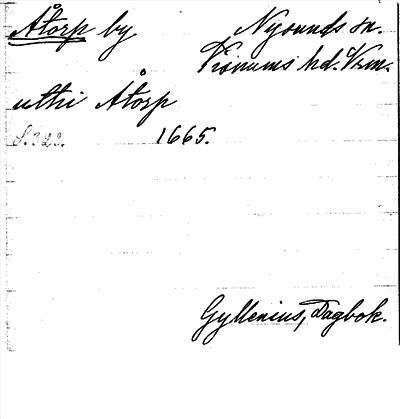 Åtorp by Nysunds sn.
Visnums hd. Vrm.
uthi Åtorp
S. 323. 1665.
Gyllenius, Dagbok.